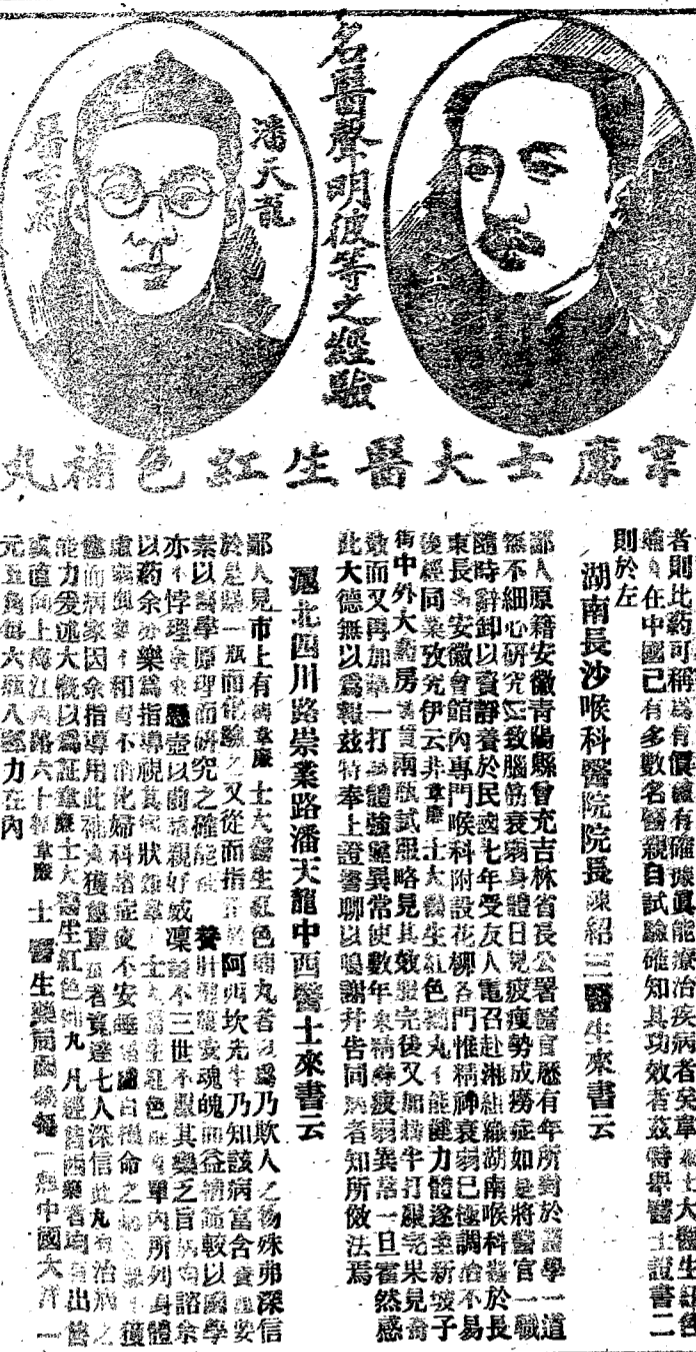 名醫聲明彼等之經驗
潘天龍
韋廉士大醫生紅色補丸
者則此藥可稱為有價値有確據眞能療治疾病者矣韋廉士大醫生紅色
補丸在中國已有多數名醫親自試驗確知其功效者茲特舉醫士證書二
則於左
湖南長沙喉科醫院院長陳紹三醫生來書云
鄙人原籍安徽青陽縣曾充吉林省長公署醫官歷有年所對於醫學一道
無不細心研究至致腦筋衰弱身體日見疲瘦勢成癆症如是將醫官一職
隨時辭卸以資靜養於民國七年受友人電召赴湘組織湖南喉科醫於長
東長安徽會館內專門喉科附設花柳各門惟精神衰弱已極調治不易
後經同業攷究伊云非韋廉士大醫生紅色補丸不能健力體遂至新坡子
街中外大藥房購買兩瓶試服略見其效服完後又加購半打服完果見奮
敢而又再加購一打身體強健異常使數年來精神疲弱異常一旦霍然感
此大德無以爲報茲特奉上證書聊以鳴謝幷告同病者知所倣法焉
滬北四川路崇業路潘天龍中西醫士來書云
鄙人見市上有韋廉士大醫生紅色補丸者以爲乃欺人之物殊弗深信
於是購一瓶而化驗之又從而指 阿西坎先生乃知該病富含養血要
素以醫學原理而研究之確能 養肝 魂魄而益精 較以醫學
亦不悖理余 懸壺以前 親好戚 不三世不服其藥之旨 諮余
以藥余亦樂爲指導視其症狀如韋廉士大醫生紅色補丸單內所列身體
虛弱 和胃不消化婦科諸症夜不安睡 獲
癒而病家因余指導用此補丸獲癒重 者竟達七人深信此丸有治病之
能力爰述大槪以爲証韋廉士大醫生紅色補丸凡經售西藥者均有出售
或直向上海江西路六十號韋廉士醫生藥局函購每一瓶中國大洋一
元五角每六瓶八 力在內